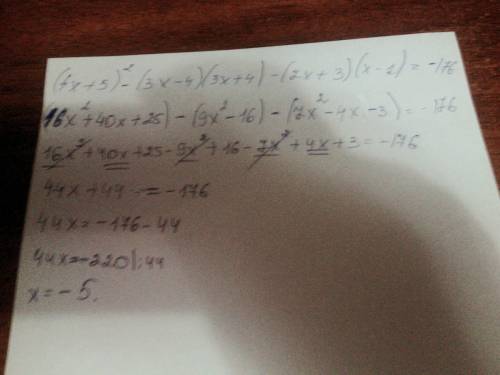 (4x+5)² - (3x-4)(3x+4) - (2x+3)(x-2) = -176
(16x²+40x+25) - (9x²-16) - (7x²-4x-3) = -176
16x²+40x+25-9x²+16-7x²+4x+3=-176
44x+44 = -176
44x=-176-44
44x=-220|:44
x=-5.